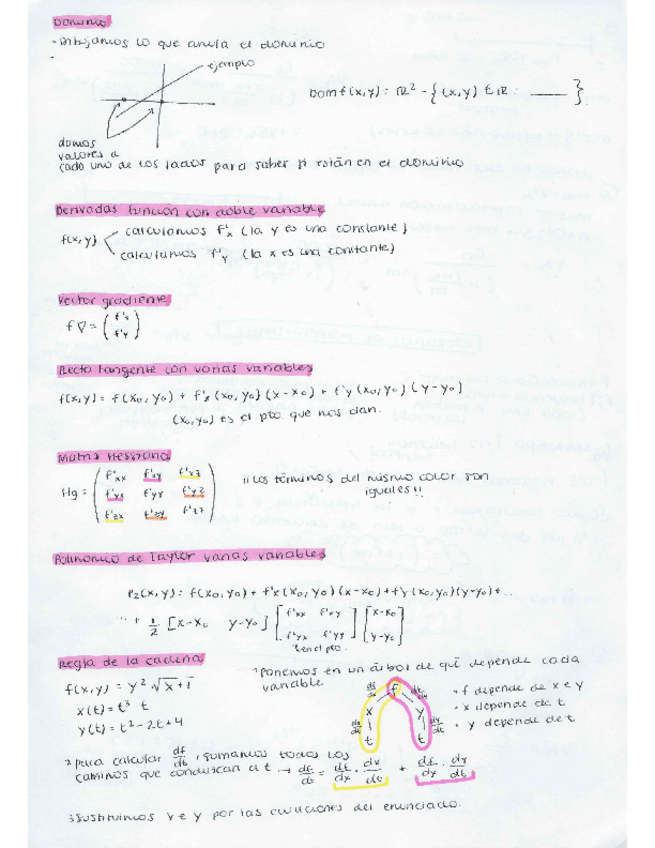 Dominio
- Dibujamos lo que anula el dominio
ejemplo
Dom f(x,y): ℝ² - {(x,y) ∈ ℝ : ____ }
damos
valores a
cada uno de los lados para saber si están en el dominio
Derivadas función con doble variable
f(x,y) calculamos f'x (la y es una constante)
calculamos f'y (la x es una constante)
Vector gradiente
f∇ = (f'x f'y)
Recta tangente con varias variables
f(x,y) = f(x₀,y₀) + f'x(x₀,y₀)(x-x₀) + f'y(x₀,y₀)(y-y₀)
(x₀,y₀) es el pto que nos dan.
Matriz Hessiana
f''xx f''xy f''xz
Hg = f''yx f''yy f''yz
f''zx f''zy f''zz
¡¡Los términos del mismo color son
iguales!!
Polinomio de Taylor varias variables
P₂(x,y): f(x₀,y₀) + f'x(x₀,y₀)(x-x₀) + f'y(x₀,y₀)(y-y₀) + ...
... + 1/2 [x-x₀ y-y₀] [f''xx f''xy f''yx f''yy] [x-x₀ y-y₀]
en el pto.
Regla de la cadena
f(x,y) = y² √x+1
x(t) = t³ t
y(t) = t² - 2t + 4
¹ Ponemos en un árbol de qué depende cada
variable.
df/dx f df/dy
x y
dx/dt dy/dt
t t
· f depende de x e y
· x depende de t
· y depende de t
² para calcular df/dt, sumamos todos los
caminos que conduzcan a t → df/dt = df/dx · dx/dt + df/dy · dy/dt
³ Sustituimos x e y por las ecuaciones del enunciado.